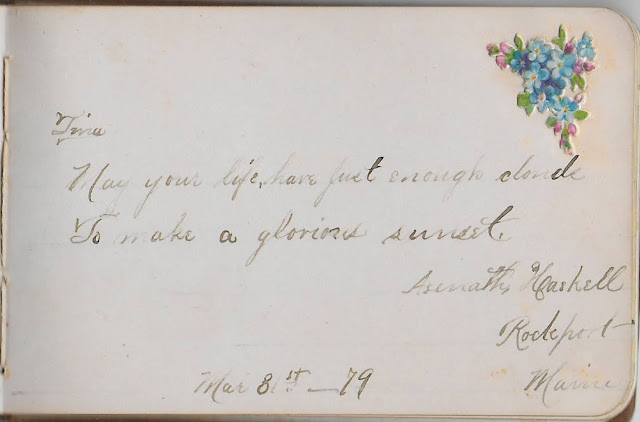 Tina
May your life, have just enough clouds
To make a glorious sunset.
Asenath Haskell
Rockport
Maine
Mar 31st — 79